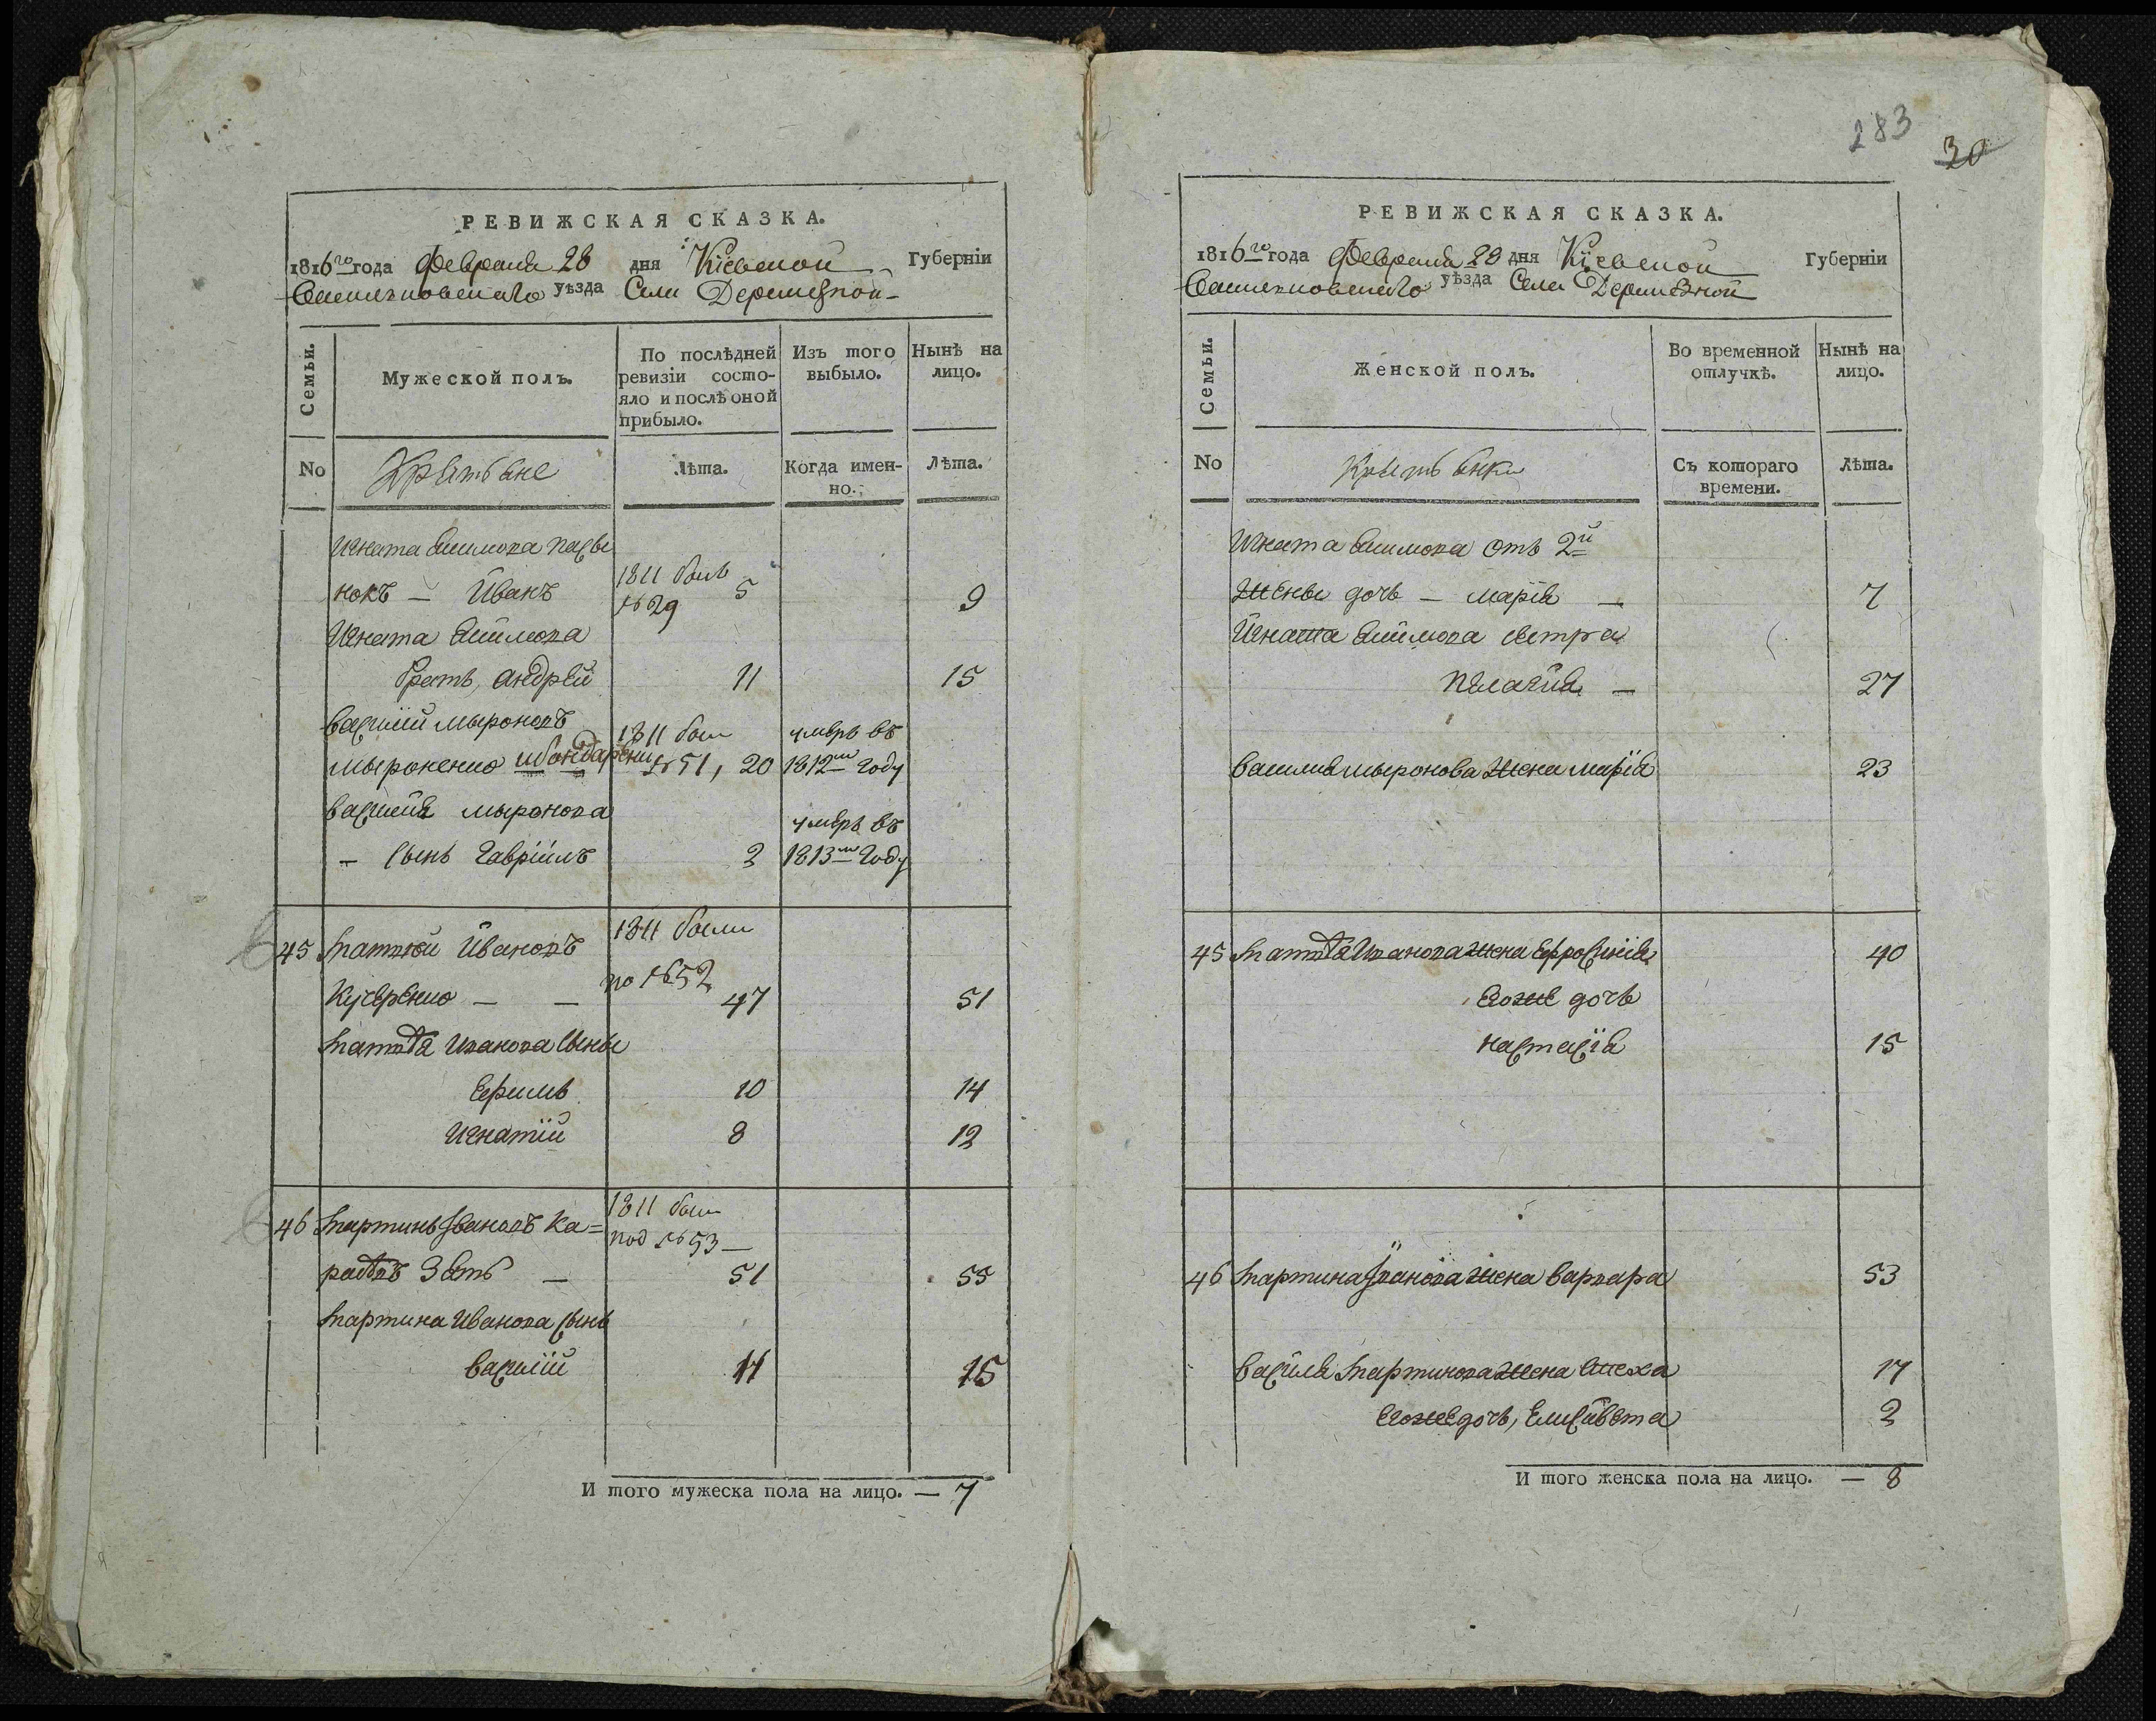 РЕВИЖСКАЯ СКАЗКА.
1816го года Февраля 28 дня Кіевской Губерніи
Васильковскаго уѣзда Села Деремезной
Семьи.
Мужеской полъ.
По послѣдней ревизіи состо-
яло и послѣ оной
прибыло.
Изъ того
выбыло.
Нынѣ на
лицо.
No
Крестьяне
Лѣта.
Когда имен-
но.
Лѣта.
Игната пасы
нокъ — Иванъ 1811 былъ № 29 5 9
Игната
братъ, андрей 11 15
василій мыроновъ 1811 былъ умеръ въ
мыроненко № 51, 20 1812м году
василія миронова умеръ въ
— сынъ Гавріилъ 2 1813м году
45 матвей Ивановъ 1811 были
Кучеренко — — по № 52 47 51
матвѣя иванова сыны
Ефимъ 10 14
игнатій 8 12
46 мартинъ Ивановъ Ка= 1811 были под № 53 —
Зять — 51 55
мартина иванова сынъ
василій 11 15
И того мужеска пола на лицо. — 7
283
30
РЕВИЖСКАЯ СКАЗКА.
1816го года Февраля 28 дня Кіевской Губерніи
Васильковскаго уѣзда Села Деремезной
Семьи.
Женской полъ.
Во временной
отлучкѣ.
Нынѣ на
лицо.
No
Крестьянки
Съ котораго
времени.
Лѣта.
Игната отъ 2й
жены дочь — марія — 7
Игната сестра
пелагия — 27
василия мыронова жена марія 23
45 матвѣя Иванова жена Ефросинія 40
Егоже дочь
настасія 15
46 мартина Иванова жена варвара 53
василя мартинова жена 17
Егоже дочь, Елисавета 2
И того женска пола на лицо. — 8